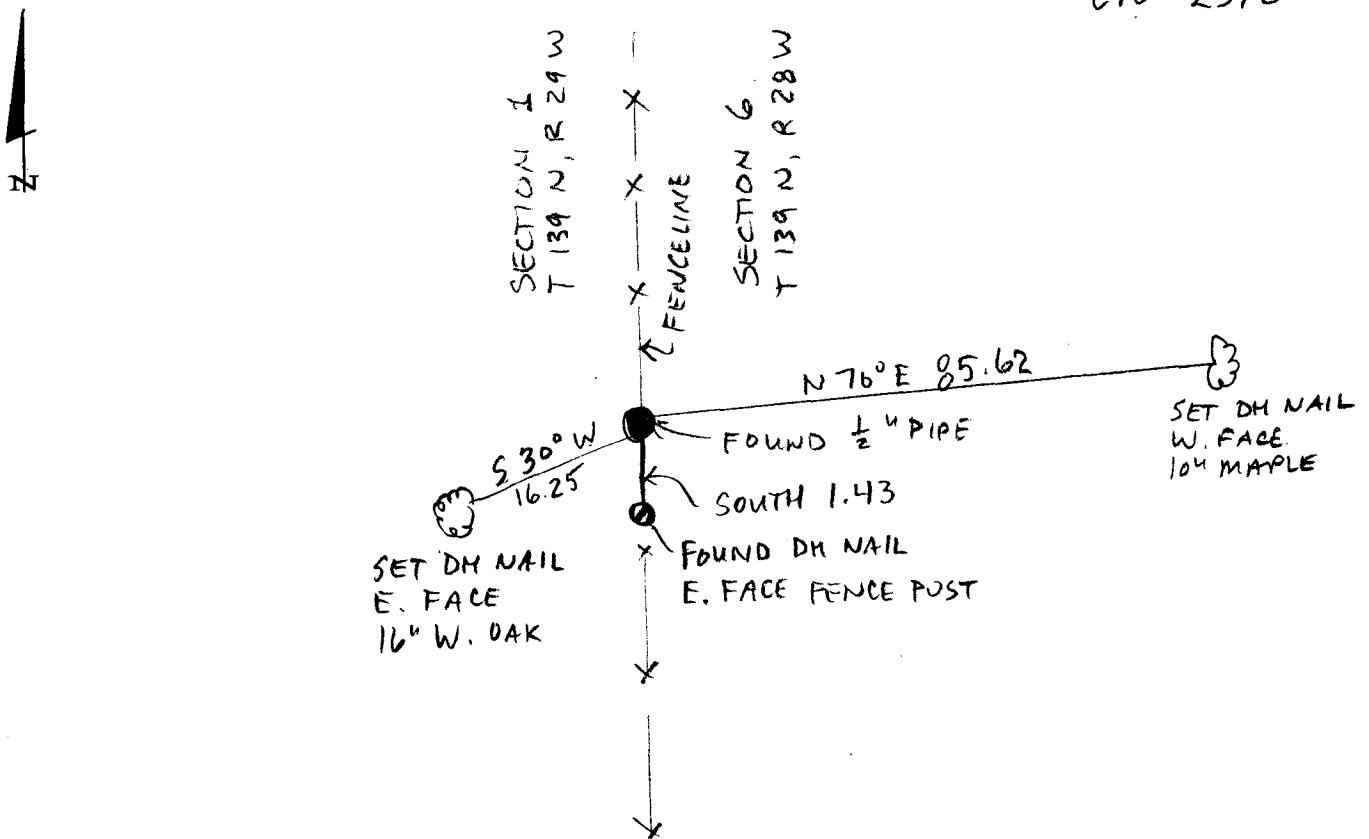 N
SECTION 1
T 139 N, R 29 W
FENCELINE
SECTION 6
T 139 N, R 28 W
N 76° E 85.62
FOUND 1/2" PIPE
SET DH NAIL
W. FACE
10" MAPLE
S 30° W
16.25
SOUTH 1.43
FOUND DH NAIL
E. FACE FENCE POST
SET DH NAIL
E. FACE
16" W. OAK